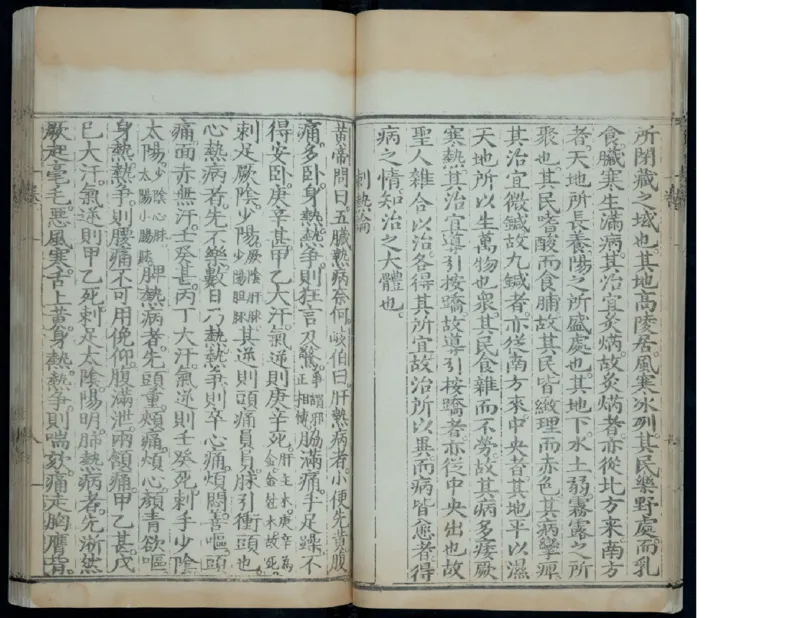 所閉藏之域也。其地高陵居。風寒冰冽。其民樂野處而乳
食。臟寒生滿病。其治宜灸焫。故灸焫者。亦從北方來。南方
者。天地所長養。陽之所盛處也。其地下。水土弱。霧露之所
聚也。其民嗜酸而食胕。故其民皆緻理而赤色。其病攣痺。
其治宜微鍼。故九鍼者。亦從南方來。中央者。其地平以濕。
天地所以生萬物也衆。其民食雜而不勞。故其病多痿厥
寒熱。其治宜導引按蹻。故導引按蹻者。亦從中央出也。故
聖人雜合以治。各得其所宜。故治所以異而病皆愈者。得
病之情。知治之大體也。
刺熱論
黃帝問曰。五臟熱病奈何。岐伯曰。肝熱病者。小便先黃。腹
痛。多臥。身熱。熱爭則狂言及驚。事謂邪正相搏。脇滿痛。手足躁。不
得安臥。庚辛甚。甲乙大汗。氣逆則庚辛死。肝主木。庚辛為金。金尅木故死。
刺足厥陰。少陽。厥陰肝脉。少陽胆脉。其逆則頭痛員員。脉引衝頭也。
心熱病者。先不樂。數日乃熱。熱爭則卒心痛。煩悶善嘔。頭
痛面赤無汗。壬癸甚。丙丁大汗。氣逆則壬癸死。刺手少陰
太陽。少陰心脉。太陽小腸脉。脾熱病者。先頭重。頰痛。煩心。顏青。欲嘔
身熱。熱爭則腰痛不可用俛仰。腹滿泄。兩頷痛。甲乙甚。戊
巳大汗。氣逆則甲乙死。刺足太陰陽明。肺熱病者。先淅然
厥起毫毛。惡風寒。舌上黃。身熱。熱爭則喘欬。痛走胸膺背。